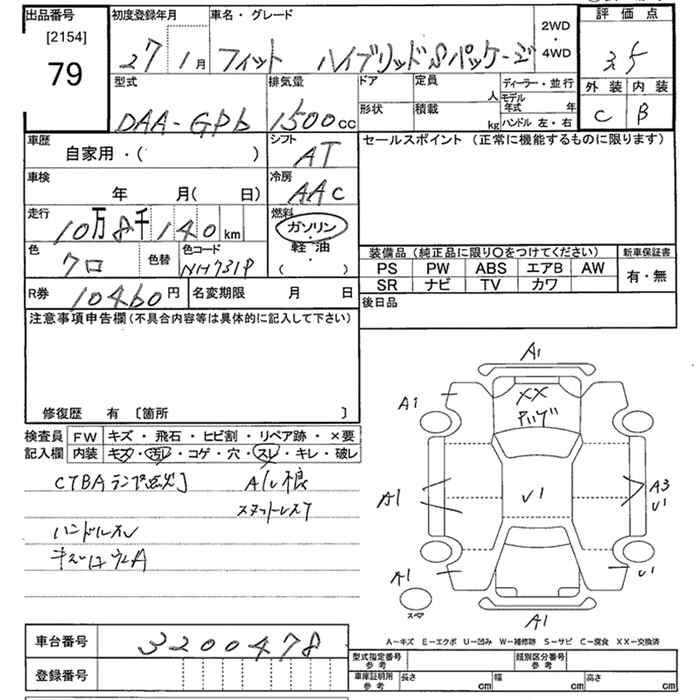 出品番号 [2154] 79
初度登録年月 27 1月
車名・グレード フィット ハイブリッドSパッケージ
2WD・4WD
評価点 3.5
外装 内装
C B
型式 DAA-GP6
排気量 1500cc
ドア
定員 人
ディーラー・並行
形状
積載 kg
モデル年式 年
ハンドル 左・右
車歴 自家用・( )
シフト AT
セールスポイント (正常に機能するものに限ります)
車検 年 月( 日)
冷房 AAC
走行 10万8千140km
燃料 ガソリン 軽・油 ( )
色 クロ
色替
色コード NH731P
装備品 (純正品に限り〇をつけてください)
新車保証書
PS PW ABS エアB AW
SR ナビ TV カワ
有・無
R券 10460円
名変期限 月 日
後日品
注意事項申告欄(不具合内容等は具体的に記入して下さい)
修復歴 有 〔箇所 〕
検査員記入欄
FW キズ・飛石・ヒビ割・リペア跡・×要
内装 キズ・汚レ・コゲ・穴・スレ・キレ・破レ
CTBAランプ点灯
スタットレス
ハンドルスレ
A1
A1
XX
A1
U1
A3
U1
A1
U1
スペア
A1
A-キズ E-エクボ U-凹み W-補修跡 S-サビ C-腐食 XX-交換済
車台番号 3200478
登録番号
型式指定番号 参考
類別区分番号 参考
車庫証明所 参考
長さ cm
幅 cm
高さ cm